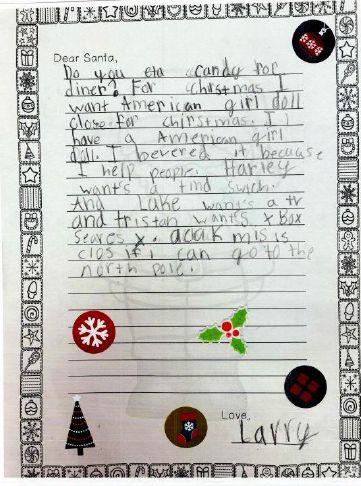 Dear Santa,
Do you eta candy for
diner? For chirstmas I
want American girl doll
close for chirstmas. I
have a American girl
doll. I bevered it because
I help people. Harley
want's a swich.
And Lake want's a tv
and tristan want's x Box
seares x. is
clos if i can go to the
north pole.
Love,
Larry